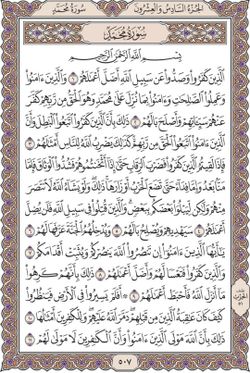 الجُزءُ السَّادِسُ وَالعِشرُونَ
سُورَةُ مُحَمَّدٍ
سُورَةُ مُحَمَّدٍ
بِسْمِ ٱللَّهِ ٱلرَّحْمَٰنِ ٱلرَّحِيمِ
ٱلَّذِينَ كَفَرُوا۟ وَصَدُّوا۟ عَن سَبِيلِ ٱللَّهِ أَضَلَّ أَعْمَٰلَهُمْ ١ وَٱلَّذِينَ ءَامَنُوا۟
وَعَمِلُوا۟ ٱلصَّٰلِحَٰتِ وَءَامَنُوا۟ بِمَا نُزِّلَ عَلَىٰ مُحَمَّدٍ وَهُوَ ٱلْحَقُّ مِن رَّبِّهِمْ كَفَّرَ
عَنْهُمْ سَيِّـَٔاتِهِمْ وَأَصْلَحَ بَالَهُمْ ٢ ذَٰلِكَ بِأَنَّ ٱلَّذِينَ كَفَرُوا۟ ٱتَّبَعُوا۟ ٱلْبَٰطِلَ وَأَنَّ
ٱلَّذِينَ ءَامَنُوا۟ ٱتَّبَعُوا۟ ٱلْحَقَّ مِن رَّبِّهِمْ كَذَٰلِكَ يَضْرِبُ ٱللَّهُ لِلنَّاسِ أَمْثَٰلَهُمْ ٣
فَإِذَا لَقِيتُمُ ٱلَّذِينَ كَفَرُوا۟ فَضَرْبَ ٱلرِّقَابِ حَتَّىٰٓ إِذَآ أَثْخَنتُمُوهُمْ فَشُدُّوا۟ ٱلْوَثَاقَ فَإِمَّا
مَنًّۢا بَعْدُ وَإِمَّا فِدَآءً حَتَّىٰ تَضَعَ ٱلْحَرْبُ أَوْزَارَهَا ذَٰلِكَ وَلَوْ يَشَآءُ ٱللَّهُ لَٱنتَصَرَ
مِنْهُمْ وَلَٰكِن لِّيَبْلُوَا۟ بَعْضَكُم بِبَعْضٍ وَٱلَّذِينَ قُتِلُوا۟ فِى سَبِيلِ ٱللَّهِ فَلَن يُضِلَّ
أَعْمَٰلَهُمْ ٤ سَيَهْدِيهِمْ وَيُصْلِحُ بَالَهُمْ ٥ وَيُدْخِلُهُمُ ٱلْجَنَّةَ عَرَّفَهَا لَهُمْ ٦
يَٰٓأَيُّهَا ٱلَّذِينَ ءَامَنُوٓا۟ إِن تَنصُرُوا۟ ٱللَّهَ يَنصُرْكُمْ وَيُثَبِّتْ أَقْدَامَكُمْ ٧
وَٱلَّذِينَ كَفَرُوا۟ فَتَعْسًا لَّهُمْ وَأَضَلَّ أَعْمَٰلَهُمْ ٨ ذَٰلِكَ بِأَنَّهُمْ كَرِهُوا۟
مَآ أَنزَلَ ٱللَّهُ فَأَحْبَطَ أَعْمَٰلَهُمْ ٩ أَفَلَمْ يَسِيرُوا۟ فِى ٱلْأَرْضِ فَيَنظُرُوا۟
كَيْفَ كَانَ عَٰقِبَةُ ٱلَّذِينَ مِن قَبْلِهِمْ دَمَّرَ ٱللَّهُ عَلَيْهِمْ وَلِلْكَٰفِرِينَ أَمْثَٰلُهَا ١٠
ذَٰلِكَ بِأَنَّ ٱللَّهَ مَوْلَى ٱلَّذِينَ ءَامَنُوا۟ وَأَنَّ ٱلْكَٰفِرِينَ لَا مَوْلَىٰ لَهُمْ ١١
الحِزْب
٥٠٧